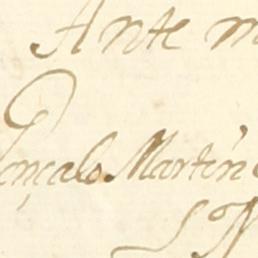 Ante m
Gonçalo Martín